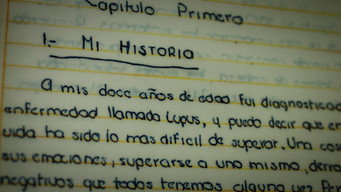 Capitulo Primero
1.- MI HISTORIA
A mis doce años de edad fui diagnosticad
enfermedad llamada lupus, y puedo decir que en
vida ha sido lo mas dificil de superar, Una cos
sus emociones, superarse a uno mismo, derro
negativos que todos tenemos alguna vez Pre